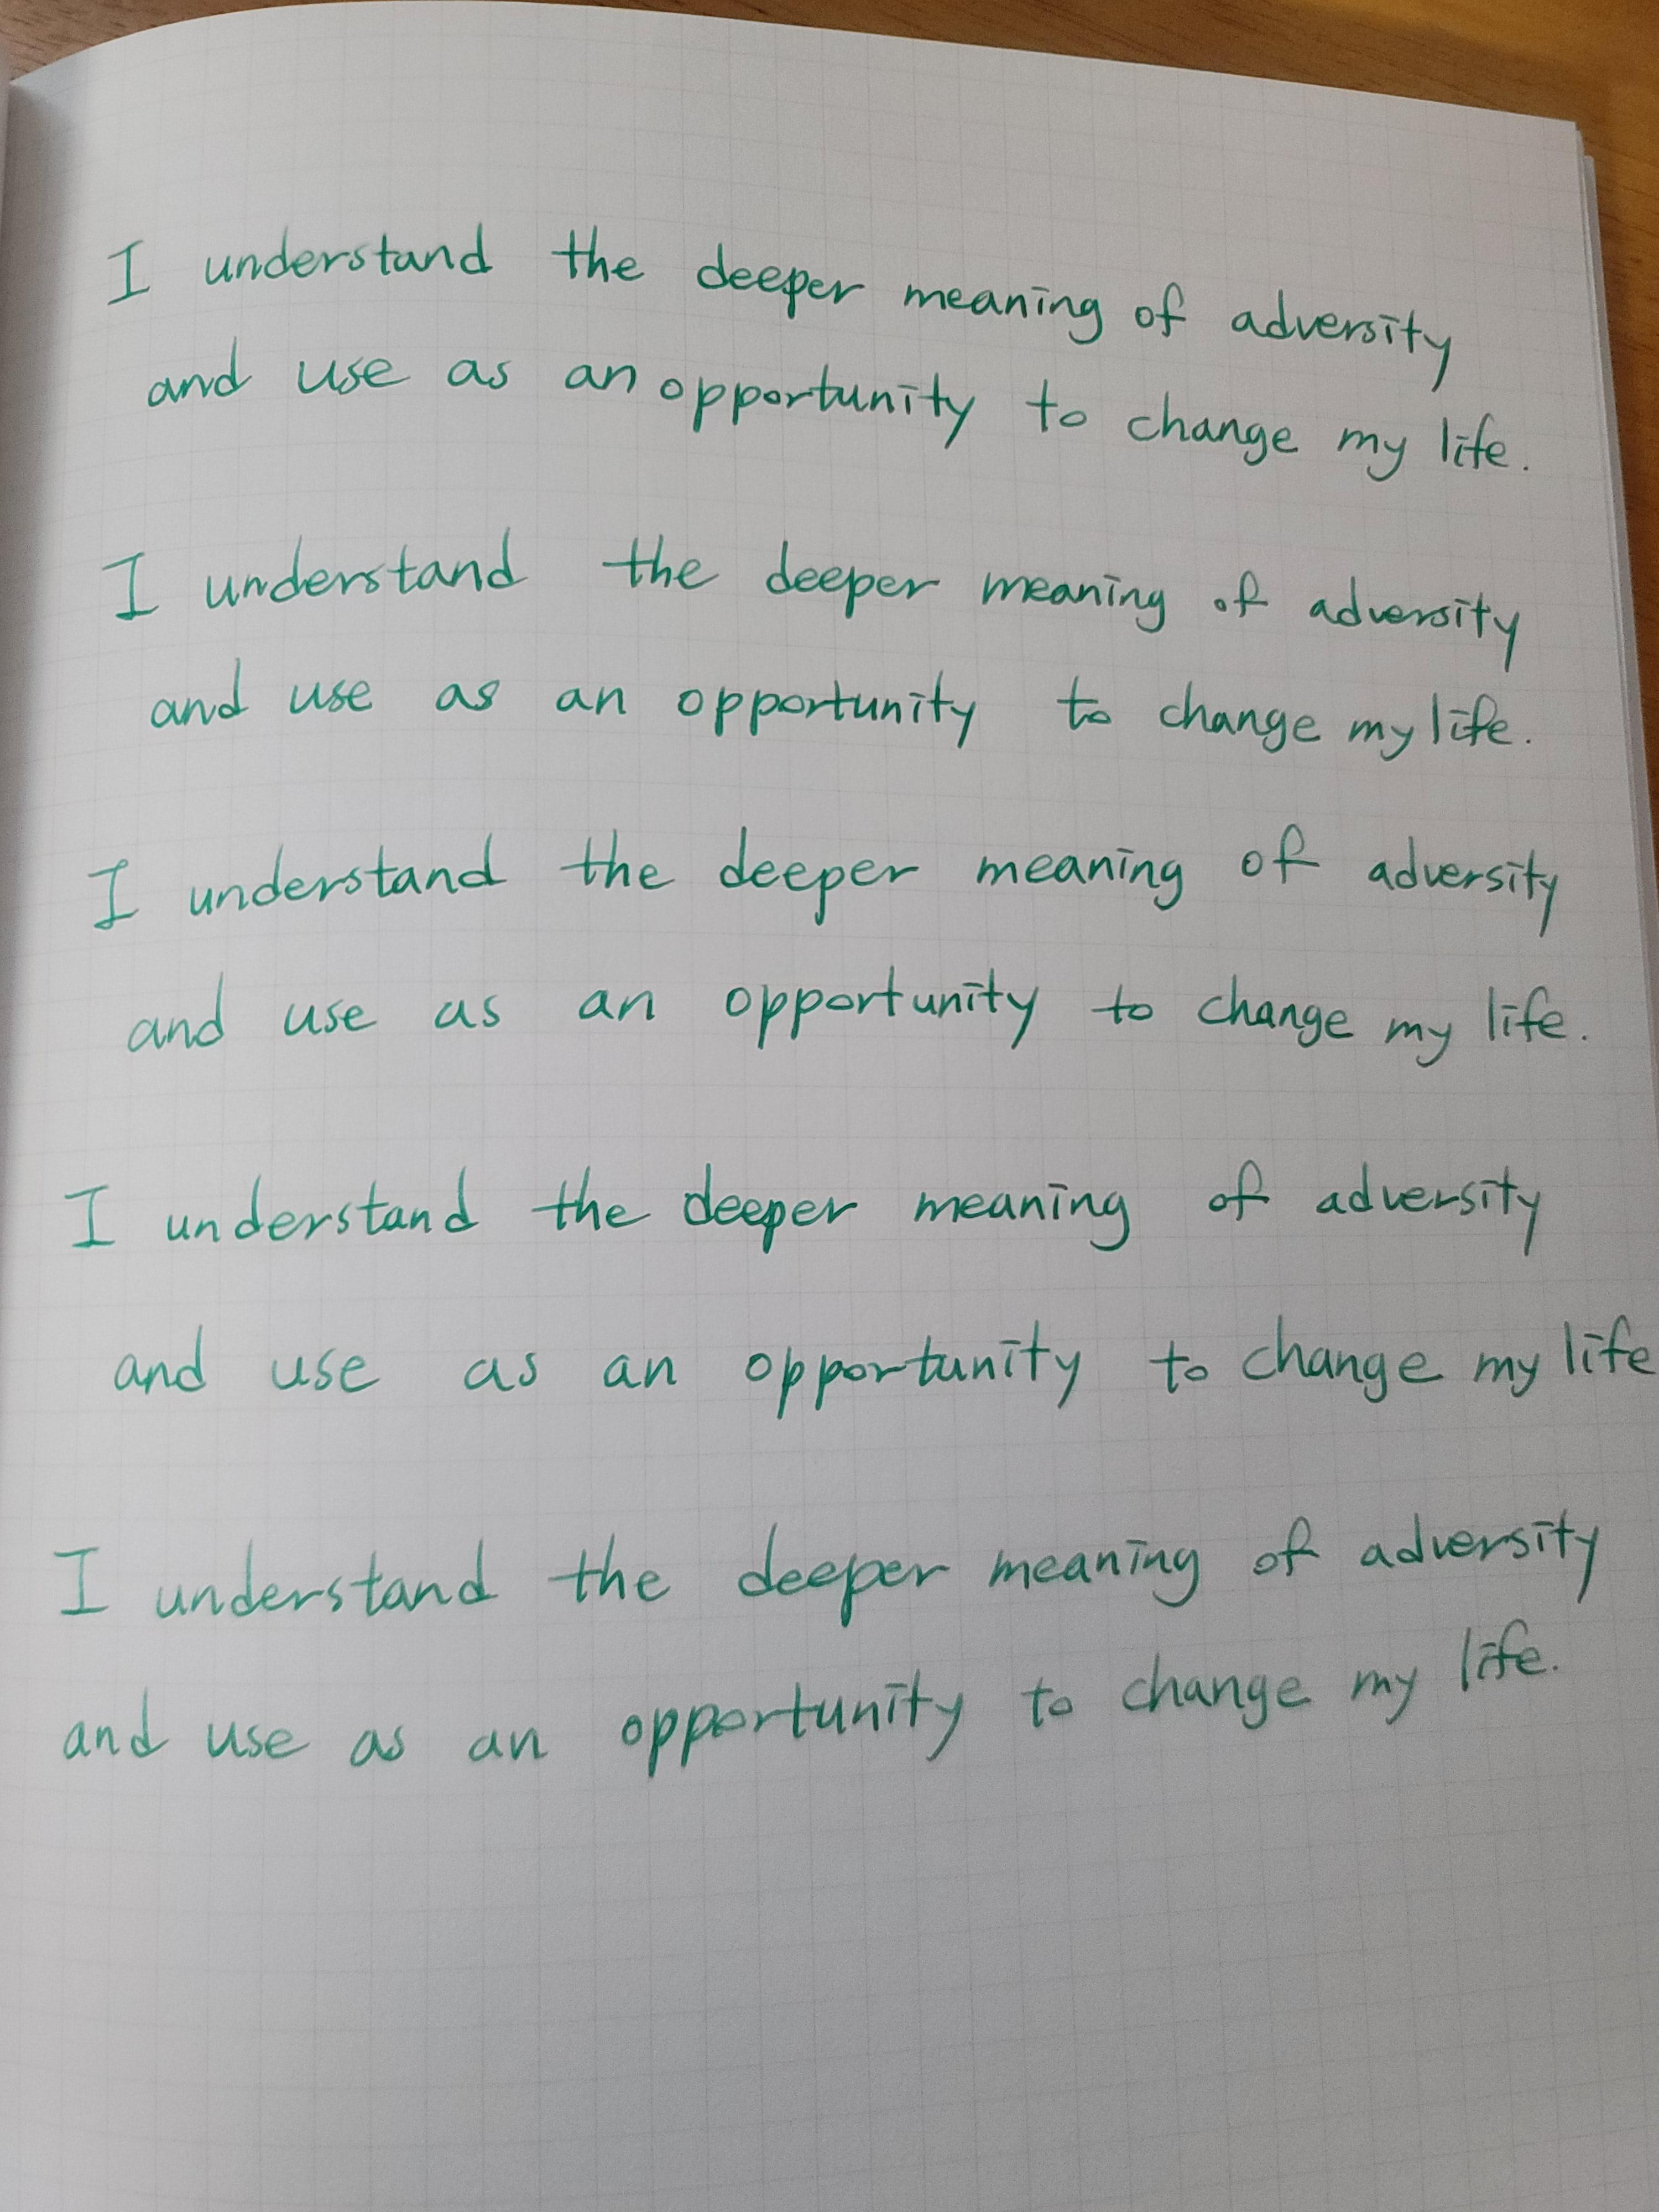 I understand the deeper meaning of adversity
and use as an opportunity to change my life.
I understand the deeper meaning of adversity
and use as an opportunity to change my life.
I understand the deeper meaning of adversity
and use as an opportunity to change my life.
I understand the deeper meaning of adversity
and use as an opportunity to change my life
I understand the deeper meaning of adversity
and use as an opportunity to change my life.